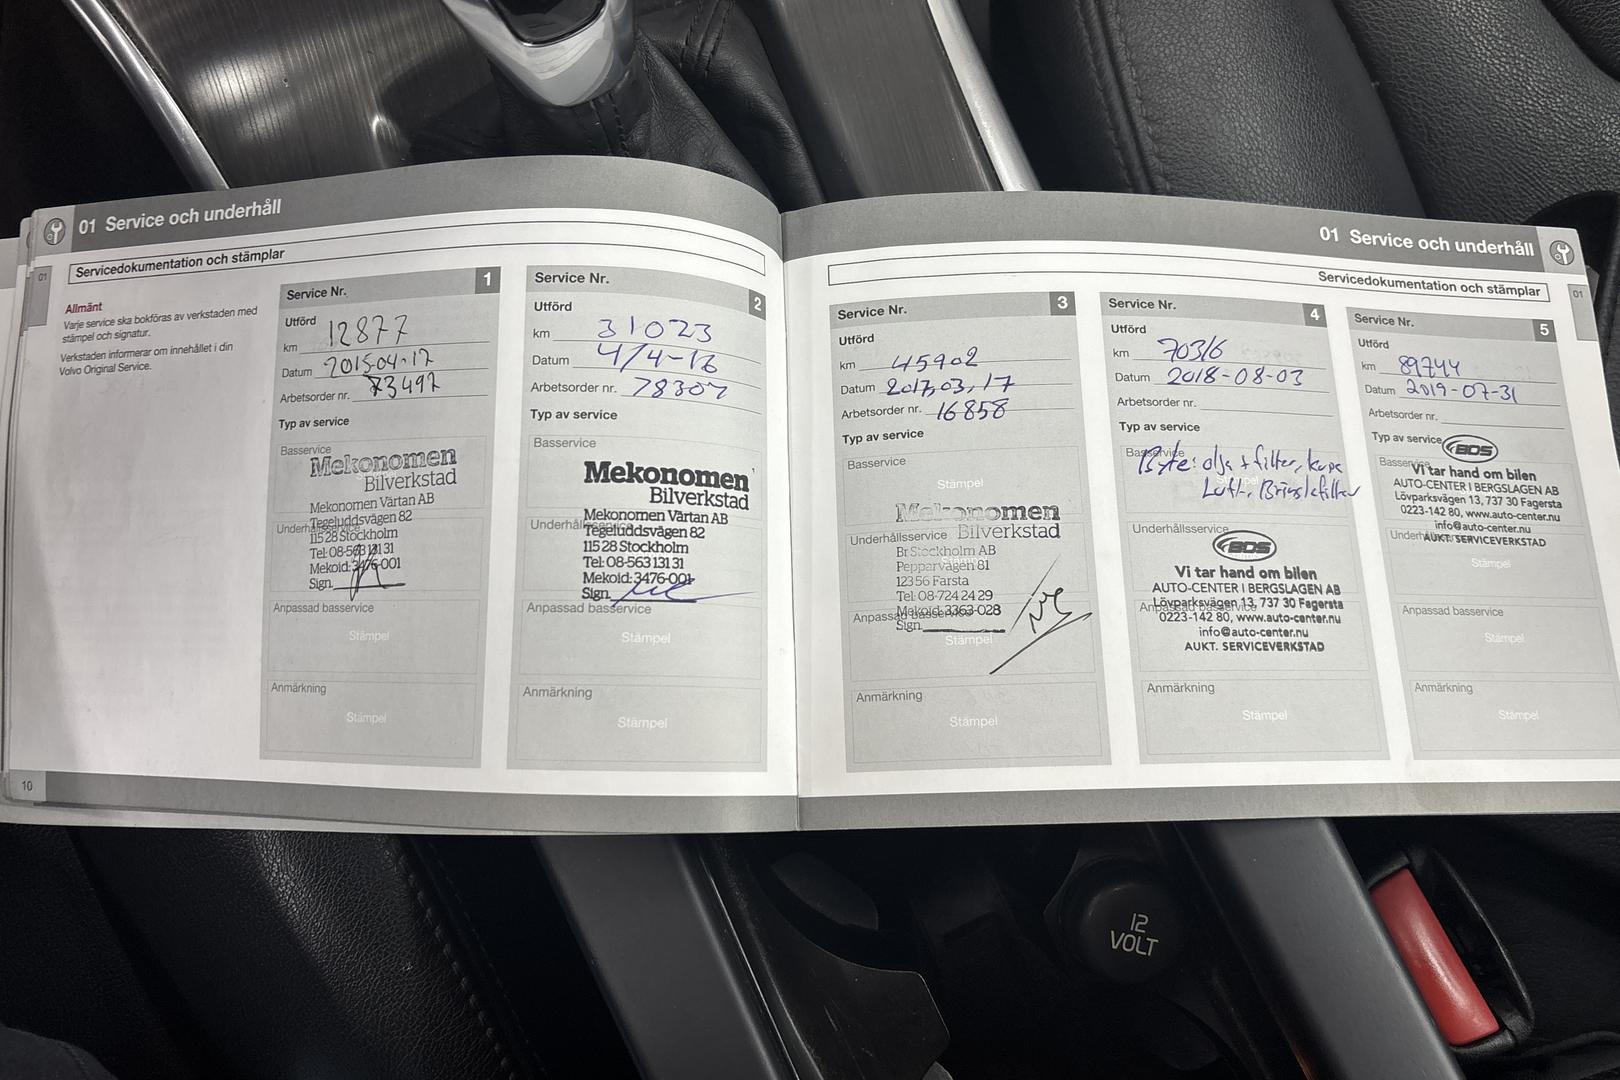 01 Service och underhåll
Servicedokumentation och stämplar
01
Allmänt
Varje service ska bokföras av verkstaden med
stämpel och signatur.
Verkstaden informerar om innehållet i din
Volvo Original Service.
Service Nr. 1
Utförd
km 12877
Datum 2015-04-17
Arbetsorder nr. 73497
Typ av service
Basservice
Mekonomen
Bilverkstad
Mekonomen Värtan AB
Tegeluddsvägen 82
Underhållsservice
115 28 Stockholm
Tel: 08-563 131 31
Mekoid: 3476-001
Sign.
Anpassad basservice
Stämpel
Anmärkning
Stämpel
Service Nr. 2
Utförd
km 31023
Datum 4/4-16
Arbetsorder nr. 78307
Typ av service
Basservice
Mekonomen
Bilverkstad
Mekonomen Värtan AB
Underhållsservice
Tegeluddsvägen 82
115 28 Stockholm
Tel: 08-563 131 31
Mekoid: 3476-001
Sign.
Anpassad basservice
Stämpel
Anmärkning
Stämpel
10
01 Service och underhåll
Servicedokumentation och stämplar
01
Service Nr. 3
Utförd
km 45902
Datum 2017,03,17
Arbetsorder nr. 16858
Typ av service
Basservice
Stämpel
Mekonomen
Underhållsservice Bilverkstad
Br Stockholm AB
Pepparvägen 81
123 56 Farsta
Tel: 08-724 24 29
Mekoid: 3363-028
Anpassad basservice
Sign.
Stämpel
Anmärkning
Stämpel
Service Nr. 4
Utförd
km 70316
Datum 2018-08-03
Arbetsorder nr.
Typ av service
Basservice
Byte: olja + filter, kupe
Luft-, Bränslefilter
Underhållsservice
BDS
Vi tar hand om bilen
AUTO-CENTER I BERGSLAGEN AB
Lövparksvägen 13, 737 30 Fagersta
Anpassad basservice
0223-142 80, www.auto-center.nu
info@auto-center.nu
AUKT. SERVICEVERKSTAD
Anmärkning
Stämpel
Service Nr. 5
Utförd
km 89744
Datum 2019-07-31
Arbetsorder nr.
Typ av service
BDS
Basservice
Vi tar hand om bilen
AUTO-CENTER I BERGSLAGEN AB
Lövparksvägen 13, 737 30 Fagersta
0223-142 80, www.auto-center.nu
info@auto-center.nu
Underhållsservice
AUKT. SERVICEVERKSTAD
Stämpel
Anpassad basservice
Stämpel
Anmärkning
Stämpel
12
VOLT